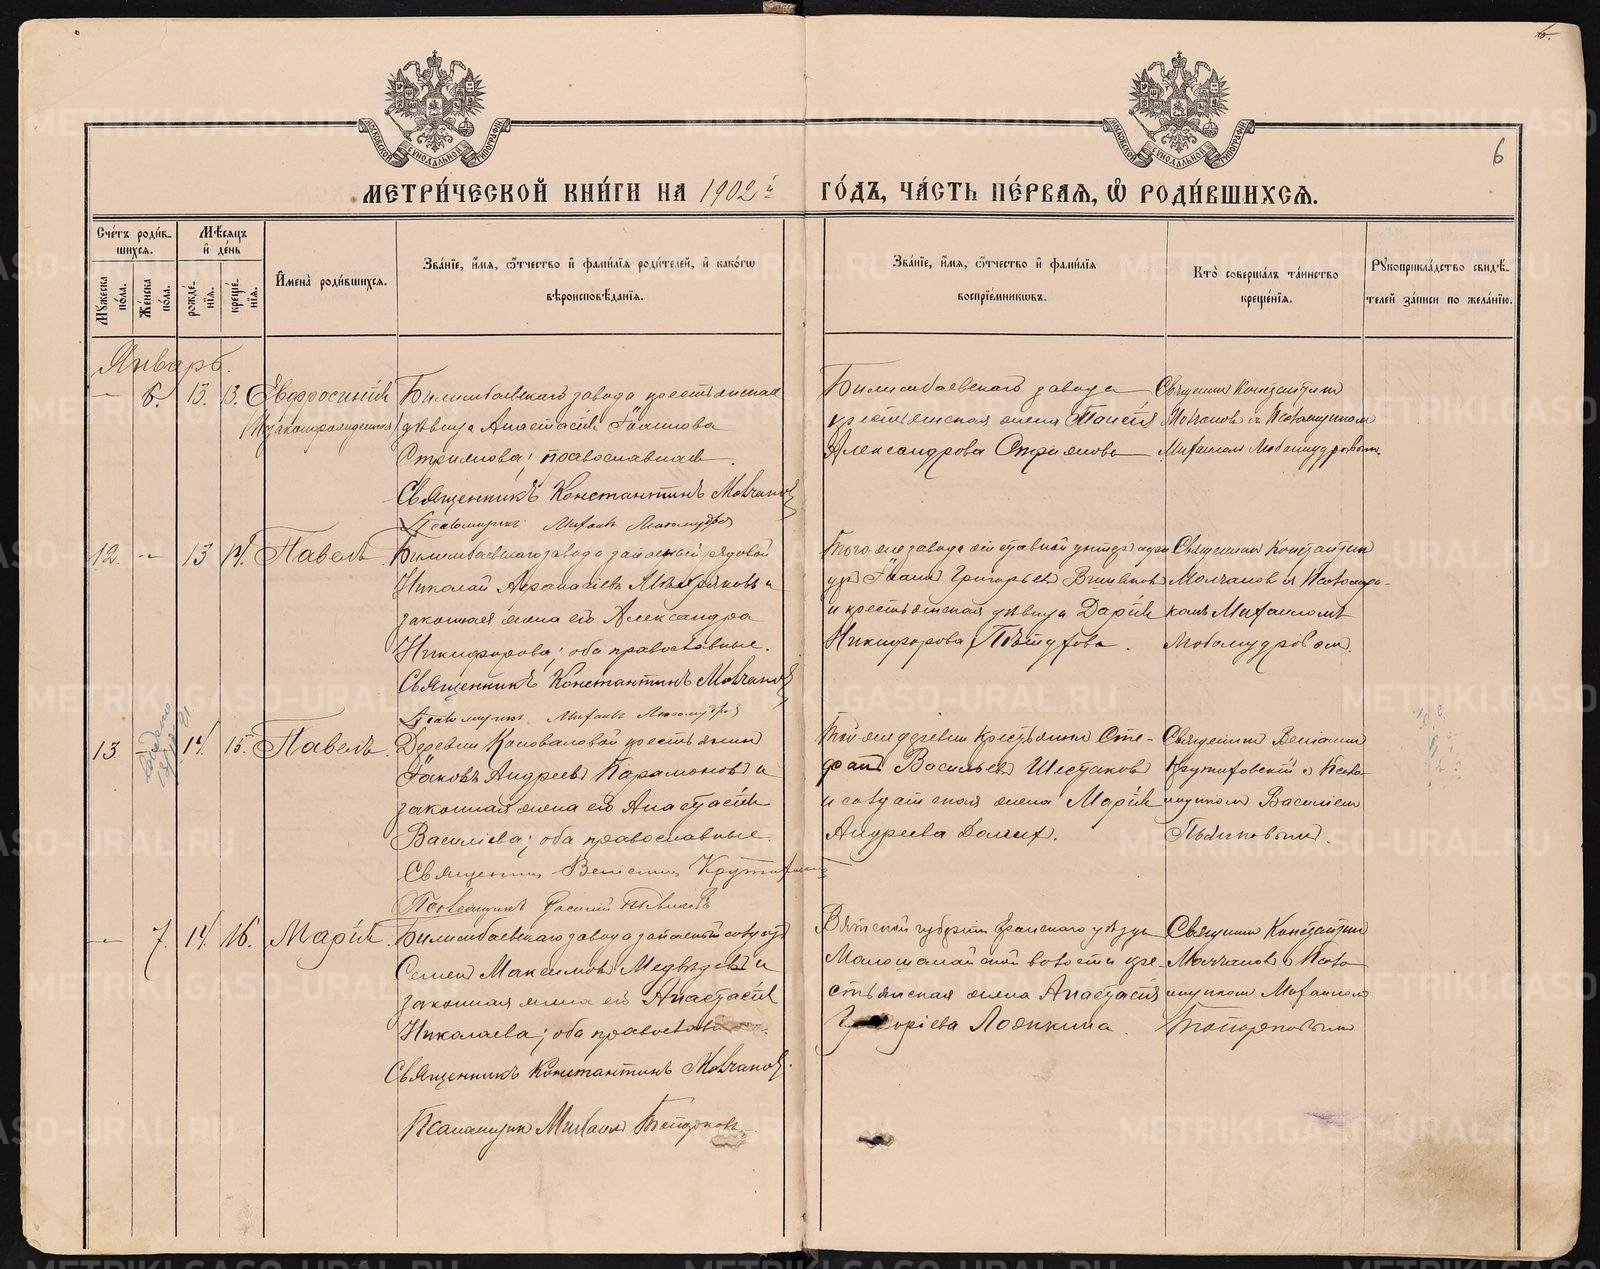 МОСКОВСКОЙ СѴНОДАЛЬНОЙ ТИПОГРАФІИ
МОСКОВСКОЙ СѴНОДАЛЬНОЙ ТИПОГРАФІИ
6
МЕТРИ́ЧЕСКОЙ КНИ́ГИ НА 1902й ГО́ДЪ, ЧА́СТЬ ПЕ́РВАЯ, Ѡ҆ РОДИ́ВШИХСЯ.
Сче́тъ роди́в-
шихся.
Мꙋ́жеска по́ла.
Же́нска по́ла.
Мѣ́сяцъ и҆ де́нь
рожде́-
нїя.
креще́-
нїя.
И҆мена̀ роди́вшихся.
Зва́нїе, и҆́мя, ѻ҆́тчество и҆ фами́лїя роди́телей, и҆ како́гѡ
вѣроисповѣ́данїя.
Зва́нїе, и҆́мя, ѻ҆́тчество и҆ фами́лїя
воспрїе́мникѡвъ.
Кто̀ соверша́лъ та́инство
креще́нїя.
Рꙋкоприкла́дство свидѣ́-
телей за́писи по жела́нїю.
Январь.
- 6. 13. 13. Евфросинія
(Незаконнорожденная)
Билимбаевскаго завода крестьянская
дѣвица Анастасія Іванова
Стрижова; православная.
Священникъ Константинъ Молчановъ
Псаломщикъ Михаилъ Любомудровъ
Билимбаевскаго завода
крестьянская жена Таисія
Александрова Стрижова
Священник Константин
Молчанов с Псаломщиком
Михаилом Любомудровым
12. - 13 14. Павелъ
Билимбаевскаго завода запасный рядовой
Николай Аѳанасіевъ и
законная жена его Александра
Никифорова; оба православные.
Священникъ Константинъ Молчановъ
Псаломщикъ Михаилъ Любомудровъ
Того же завода отставной унтер офи
цер Іванъ Григорьев
и крестьянская дѣвица Дарія
Никифорова Пѣтухова.
Священник Константин
Молчанов с Псаломщи-
комъ Михаиломъ
Любомудровом.
13 - 14. 15. Павелъ.
Деревни Коноваловой крестьянин
Іаковъ Андреев Парамонов и
законная жена его Анастасія
Василіева; оба православные.
Священник Вениамин
Псаломщикъ Василій
Той же деревни крестьянин Сте-
фан Васильев Шестаков
и солдатская жена Марія
Андреева Долгих.
Священник Вениамин
и Псало-
мщиком Василіем
Пьянковым.
- 7. 14. 16. Марія.
Билимбаевскаго завода запасный
Семен Максимов Медвѣдев и
законная жена его Анастасія
Николаева; оба
Священникъ Константинъ Молчановъ.
Псаломщик Михаил Топорков
Вятской губерніи уѣзда
волости кре-
стьянская жена Анастасія
Лопкина.
Священник Константин
Молчанов с Псало-
мщиком Михаилом
Топорковым
METRIKI.GASO-URAL.RU